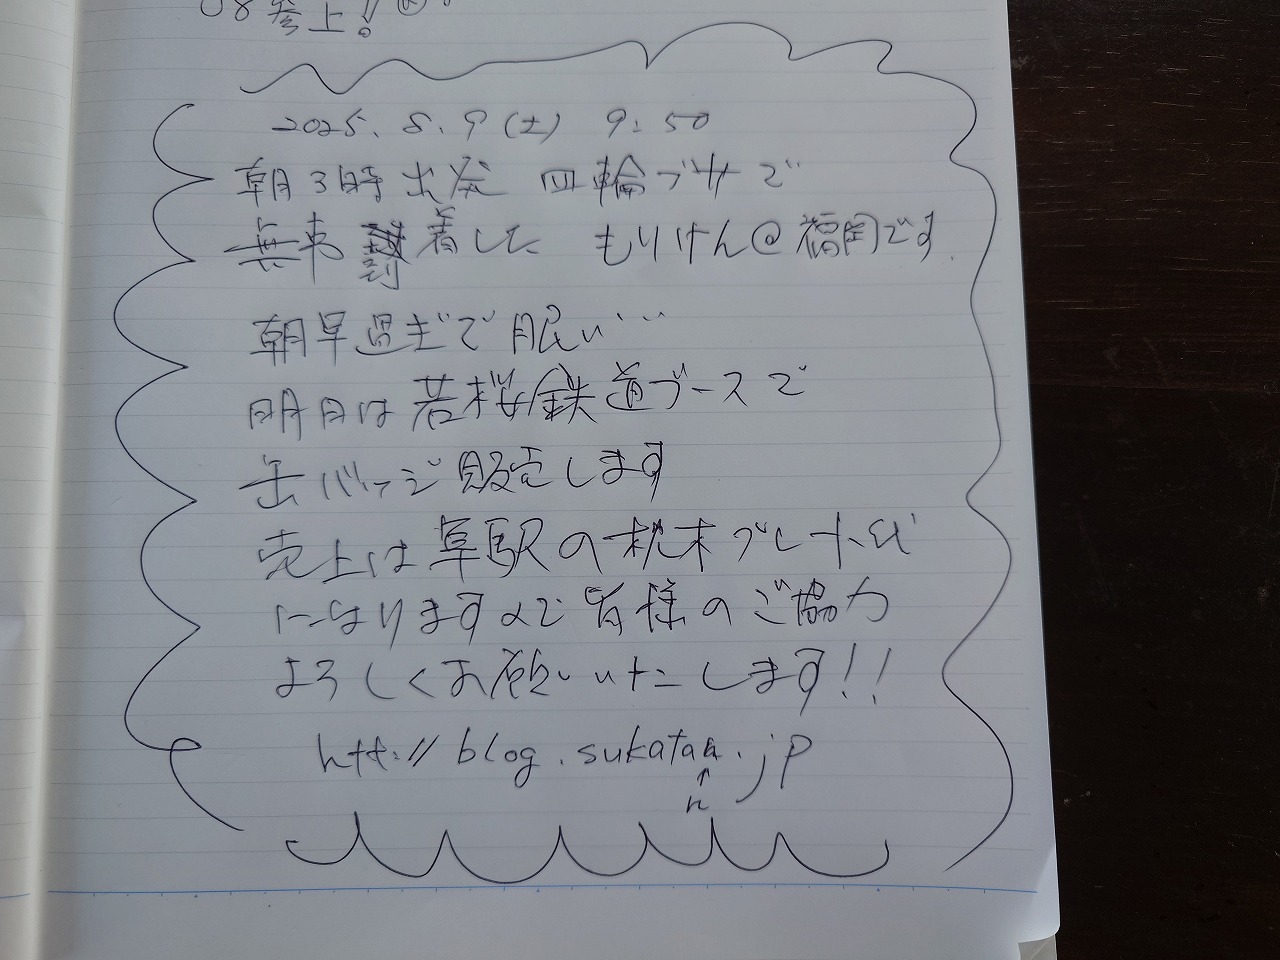 08参上!!
2025.8.9(土) 9:50
朝3時出発 四輪ブサで
無事到着した もりけん@福岡です.
朝早過ぎで眠い…
明日は若桜鉄道ブースで
缶バッジ販売します
売上は隼駅の枕木プレート代
になりますので皆様のご協力
よろしくお願いいたします!!
htt://blog.sukatan.jp
↑
n